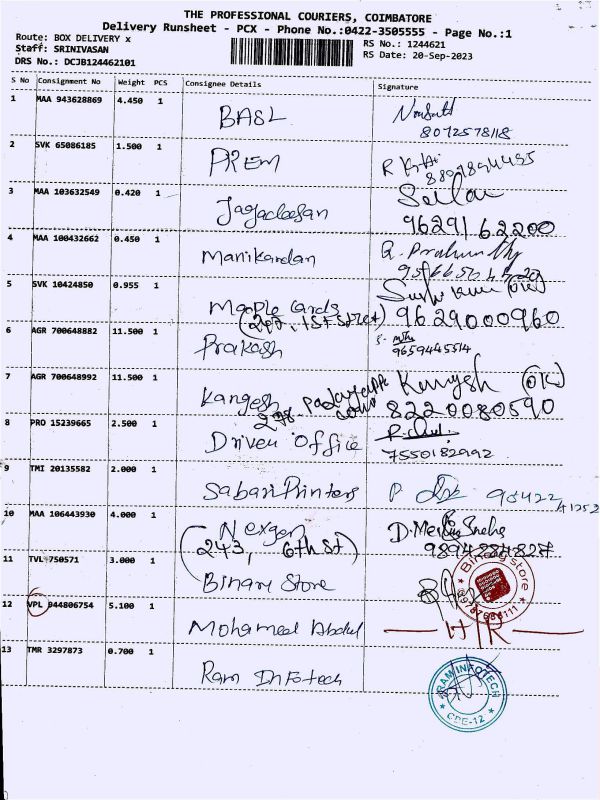 THE PROFESSIONAL COURIERS, COIMBATORE
Delivery Runsheet - PCX - Phone No.:0422-3505555 - Page No.:1
Route: BOX DELIVERY x
Staff: SRINIVASAN
DRS No.: DCJB124462101
RS No.: 1244621
RS Date: 20-Sep-2023
S No Consignment No Weight PCS Consignee Details Signature
1 MAA 943628869 4.450 1 BASL
8072578118
2 SVK 65086185 1.500 1 PREM
3 MAA 103632549 0.420 1 Jagadeesan
9629162200
4 MAA 100432662 0.450 1 Manikandan
5 SVK 10424850 0.955 1 Maple Cards (OK)
9629000960
6 AGR 700648882 11.500 1 Prakash
9659445514
7 AGR 700648992 11.500 1 Kangesh (OK)
278,
8220080590
8 PRO 15239665 2.500 1 Driven Office
7550182992
9 TMI 20135582 2.000 1 Sabari Printers
98422 41252
10 MAA 106443930 4.000 1 Nexgen
(243, 6th st)
11 TVL 750571 3.000 1 Binary Store
Binary store
12 VPL 944806754 5.100 1 Mohamed Abdul
13 TMR 3297873 0.700 1 Ram Infotech
RAM INFOTECH
CBE-12